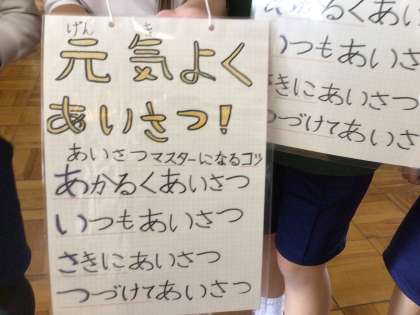 げん き
元気よく
あいさつ!
あいさつマスターになるコツ
あかるくあいさつ
いつもあいさつ
さきにあいさつ
つづけてあいさつ
あかるくあいさつ
いつもあいさつ
さきにあいさつ
つづけてあいさつ